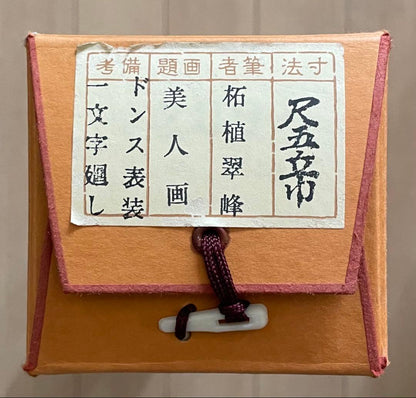 寸法
尺五立巾
筆者
柘植翠峰
画題
美人画
備考
ドンス表装
一文字廻し